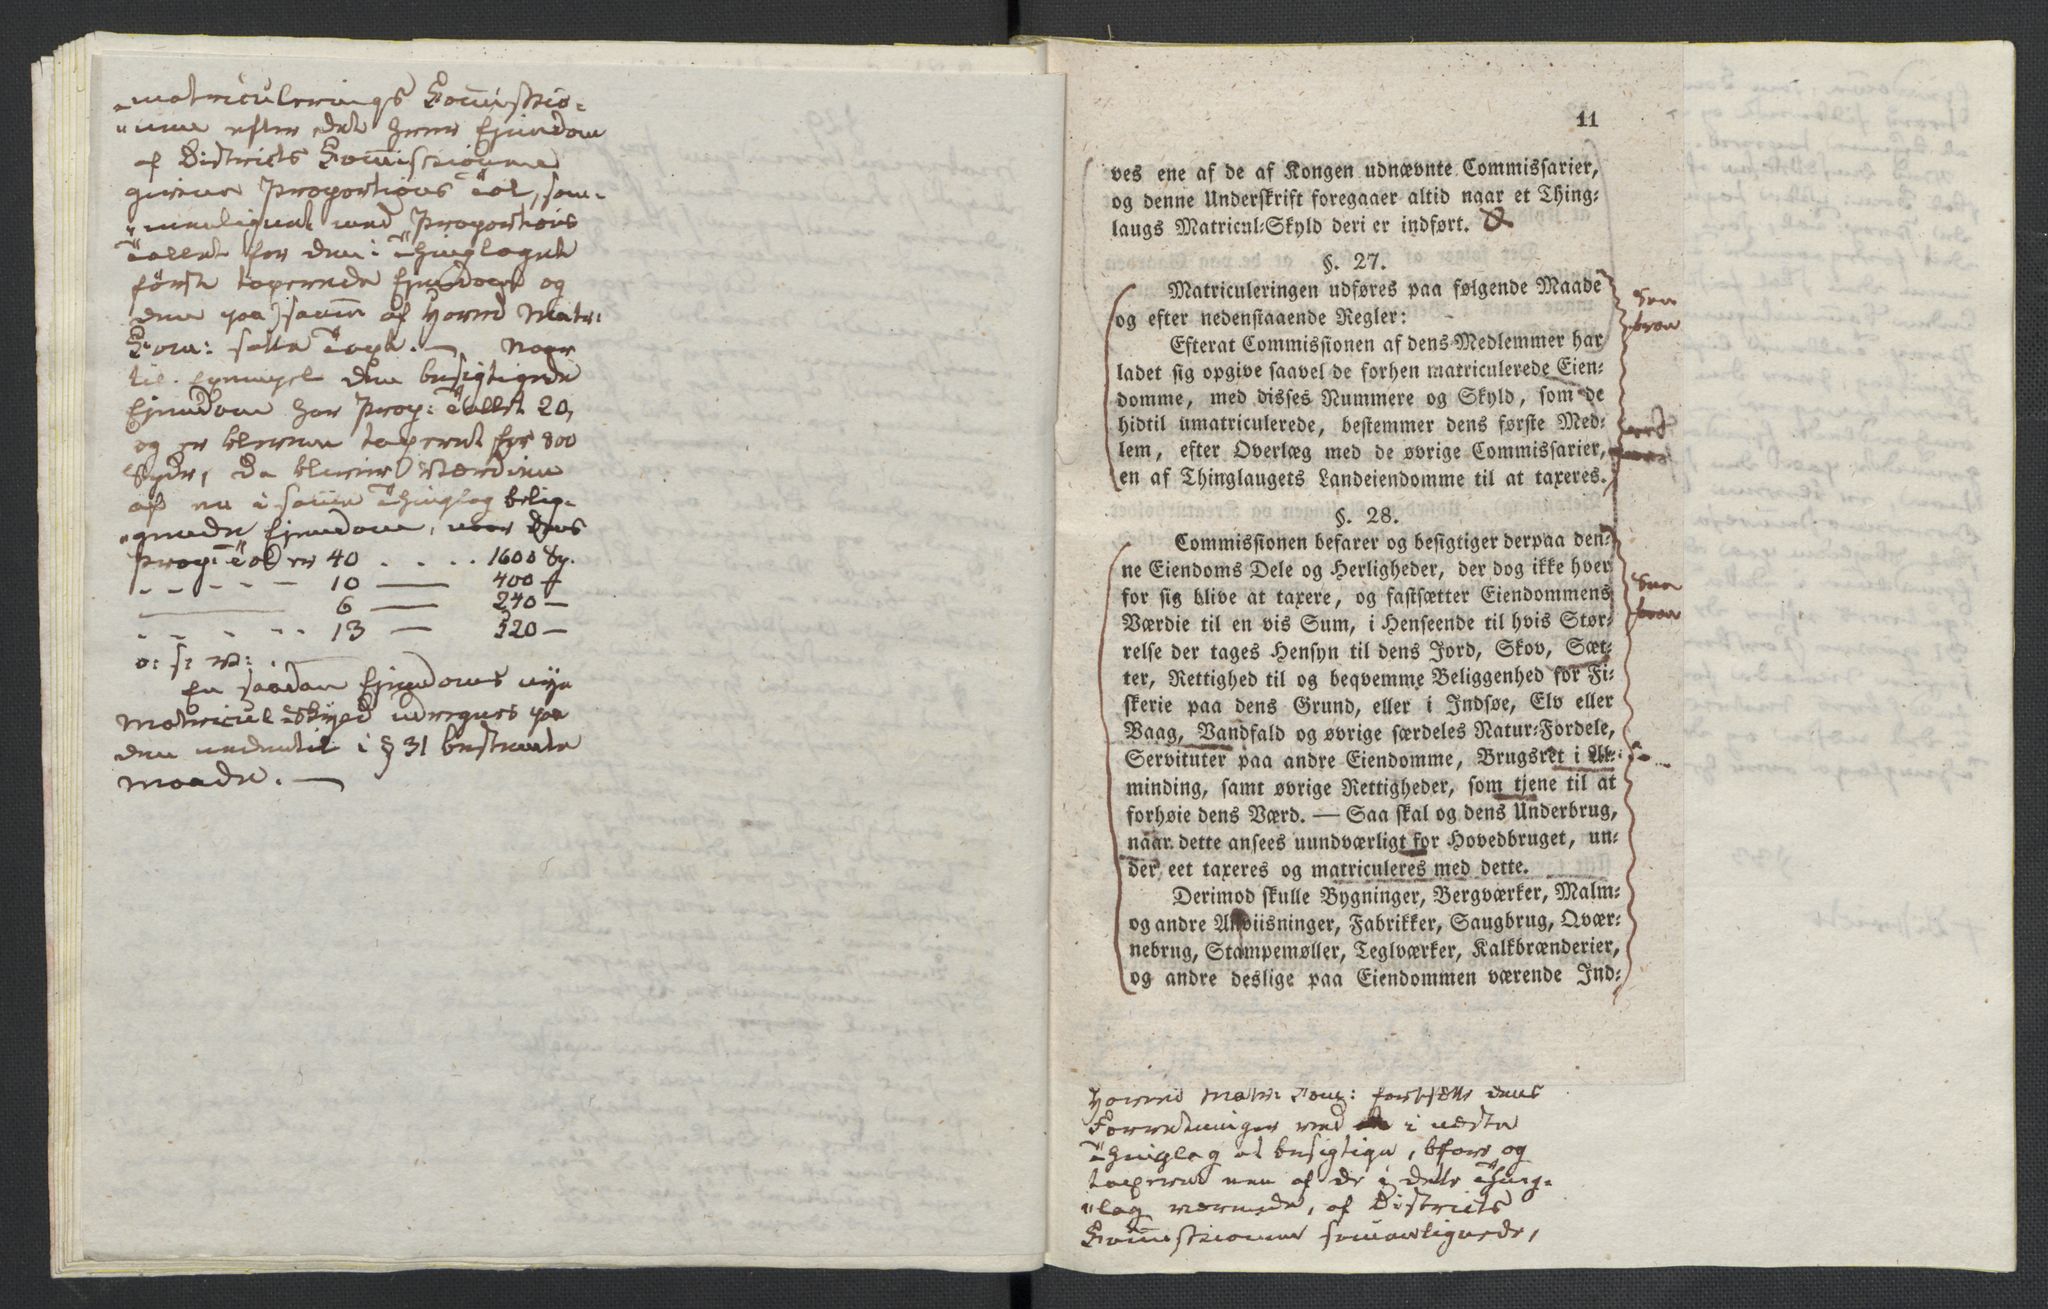 matriculerings Commissio-
nen efter det hver Ejendom
af Districts Commissionen
givne Proportions Tal, sam-
menlignet med Proportions
Tallet for den i Thinglaget
først taxerede Ejendom og
den paa samme af Hoved Matr:
Com: satte Taxt. — Naar
til Exempel den besigtigede
Ejendom har Prop: Tallet 20,
og er bleven taxeret for 800
Spdr, da bliver Værdien
af en i samme Thinglag belig-
gende Ejendom, naar dens
Prop: Tal er 40 . . . . 1600 Sp.
- - - - 10 — 400 -
— 6 — 240 —
- - - - - 13 — 520 —
o: s: v: .
En saadan Ejendoms nye
Matricul-Skyld udregnes paa
den nedentil i § 31 bestemte
Maade. —
11
ves ene af de af Kongen udnævnte Commissarier,
og denne Underskrift foregaaer altid naar et Thing-
laugs Matricul-Skyld deri er indført.
§. 27.
Matriculeringen udføres paa følgende Maade
og efter nedenstaaende Regler:
Efterat Commissionen af dens Medlemmer har
ladet sig opgive saavel de forhen matriculerede Eien-
domme, med disses Nummere og Skyld, som de
hidtil umatriculerede, bestemmer dens første Med-
lem, efter Overlæg med de øvrige Commissarier,
en af Thinglaugets Landeiendomme til at taxeres.
§. 28.
Commissionen befarer og besigtiger derpaa den-
ne Eiendoms Dele og Herligheder, der dog ikke hver
for sig blive at taxere, og fastsætter Eiendommens
Værdie til en vis Sum, i Henseende til hvis Stør-
relse der tages Hensyn til dens Jord, Skov, Sæt-
ter, Rettighed til og beqvemme Beliggenhed for Fi-
skerie paa dens Grund, eller i Indsøe, Elv eller
Vaag, Vandfald og øvrige særdeles Natur-Fordele,
Servituter paa andre Eiendomme, Brugsret i Al-
minding, samt øvrige Rettigheder, som tjene til at
forhøie dens Værd. — Saa skal og dens Underbrug,
naar dette ansees uundværligt for Hovedbruget, un-
der eet taxeres og matriculeres med dette.
Derimod skulle Bygninger, Bergværker, Malm-
og andre Anviisninger, Fabrikker, Saugbrug, Qvær-
nebrug, Stampemøller, Teglværker, Kalkbrænderier,
og andre deslige paa Eiendommen værende Ind-
Hoved Matr: Com: fortsætter dens
Forretninger ved i næste
Thinglag at besigtige, befare og
taxere een af de i dette Thing-
lag værende, af Districts
Commissionen sammenlignede,